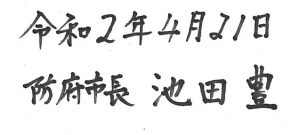 令和2年4月21日
防府市長 池田 豊